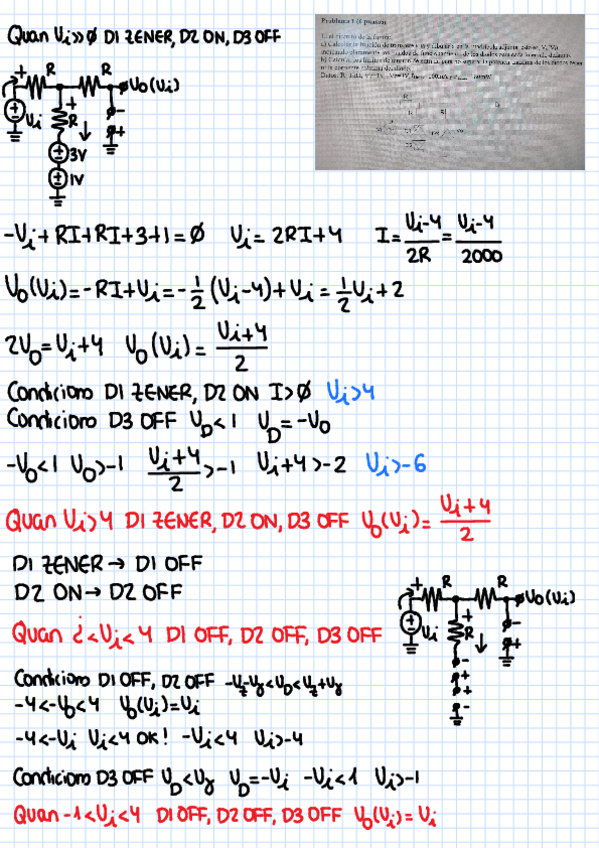 Quan Vi>>0 D1 ZENER, D2 ON, D3 OFF
Problema 1 (6 puntos)
R R Vo(Vi)
Vi R
3V
1V
-Vi+RI+RI+3+1=0 Vi=2RI+4 I=\frac{Vi-4}{2R}=\frac{Vi-4}{2000}
Vo(Vi)=-RI+Vi=-\frac{1}{2}(Vi-4)+Vi=\frac{1}{2}Vi+2
2Vo=Vi+4 Vo(Vi)=\frac{Vi+4}{2}
Condiciono D1 ZENER, D2 ON I>0 Vi>4
Condiciono D3 OFF VD<1 VD=-Vo
-Vo<1 Vo>-1 \frac{Vi+4}{2}>-1 Vi+4>-2 Vi>-6
Quan Vi>4 D1 ZENER, D2 ON, D3 OFF Vo(Vi)=\frac{Vi+4}{2}
D1 ZENER → D1 OFF
D2 ON → D2 OFF
R R Vo(Vi)
Vi R
Quan ¿<Vi<4 D1 OFF, D2 OFF, D3 OFF
Condiciono D1 OFF, D2 OFF -Vz-Vγ<VD<Vz+Vγ
-4<-Vo<4 Vo(Vi)=Vi
-4<-Vi Vi<4 OK! -Vi<4 Vi>-4
Condiciono D3 OFF VD<Vγ VD=-Vi -Vi<1 Vi>-1
Quan -1<Vi<4 D1 OFF, D2 OFF, D3 OFF Vo(Vi)=Vi